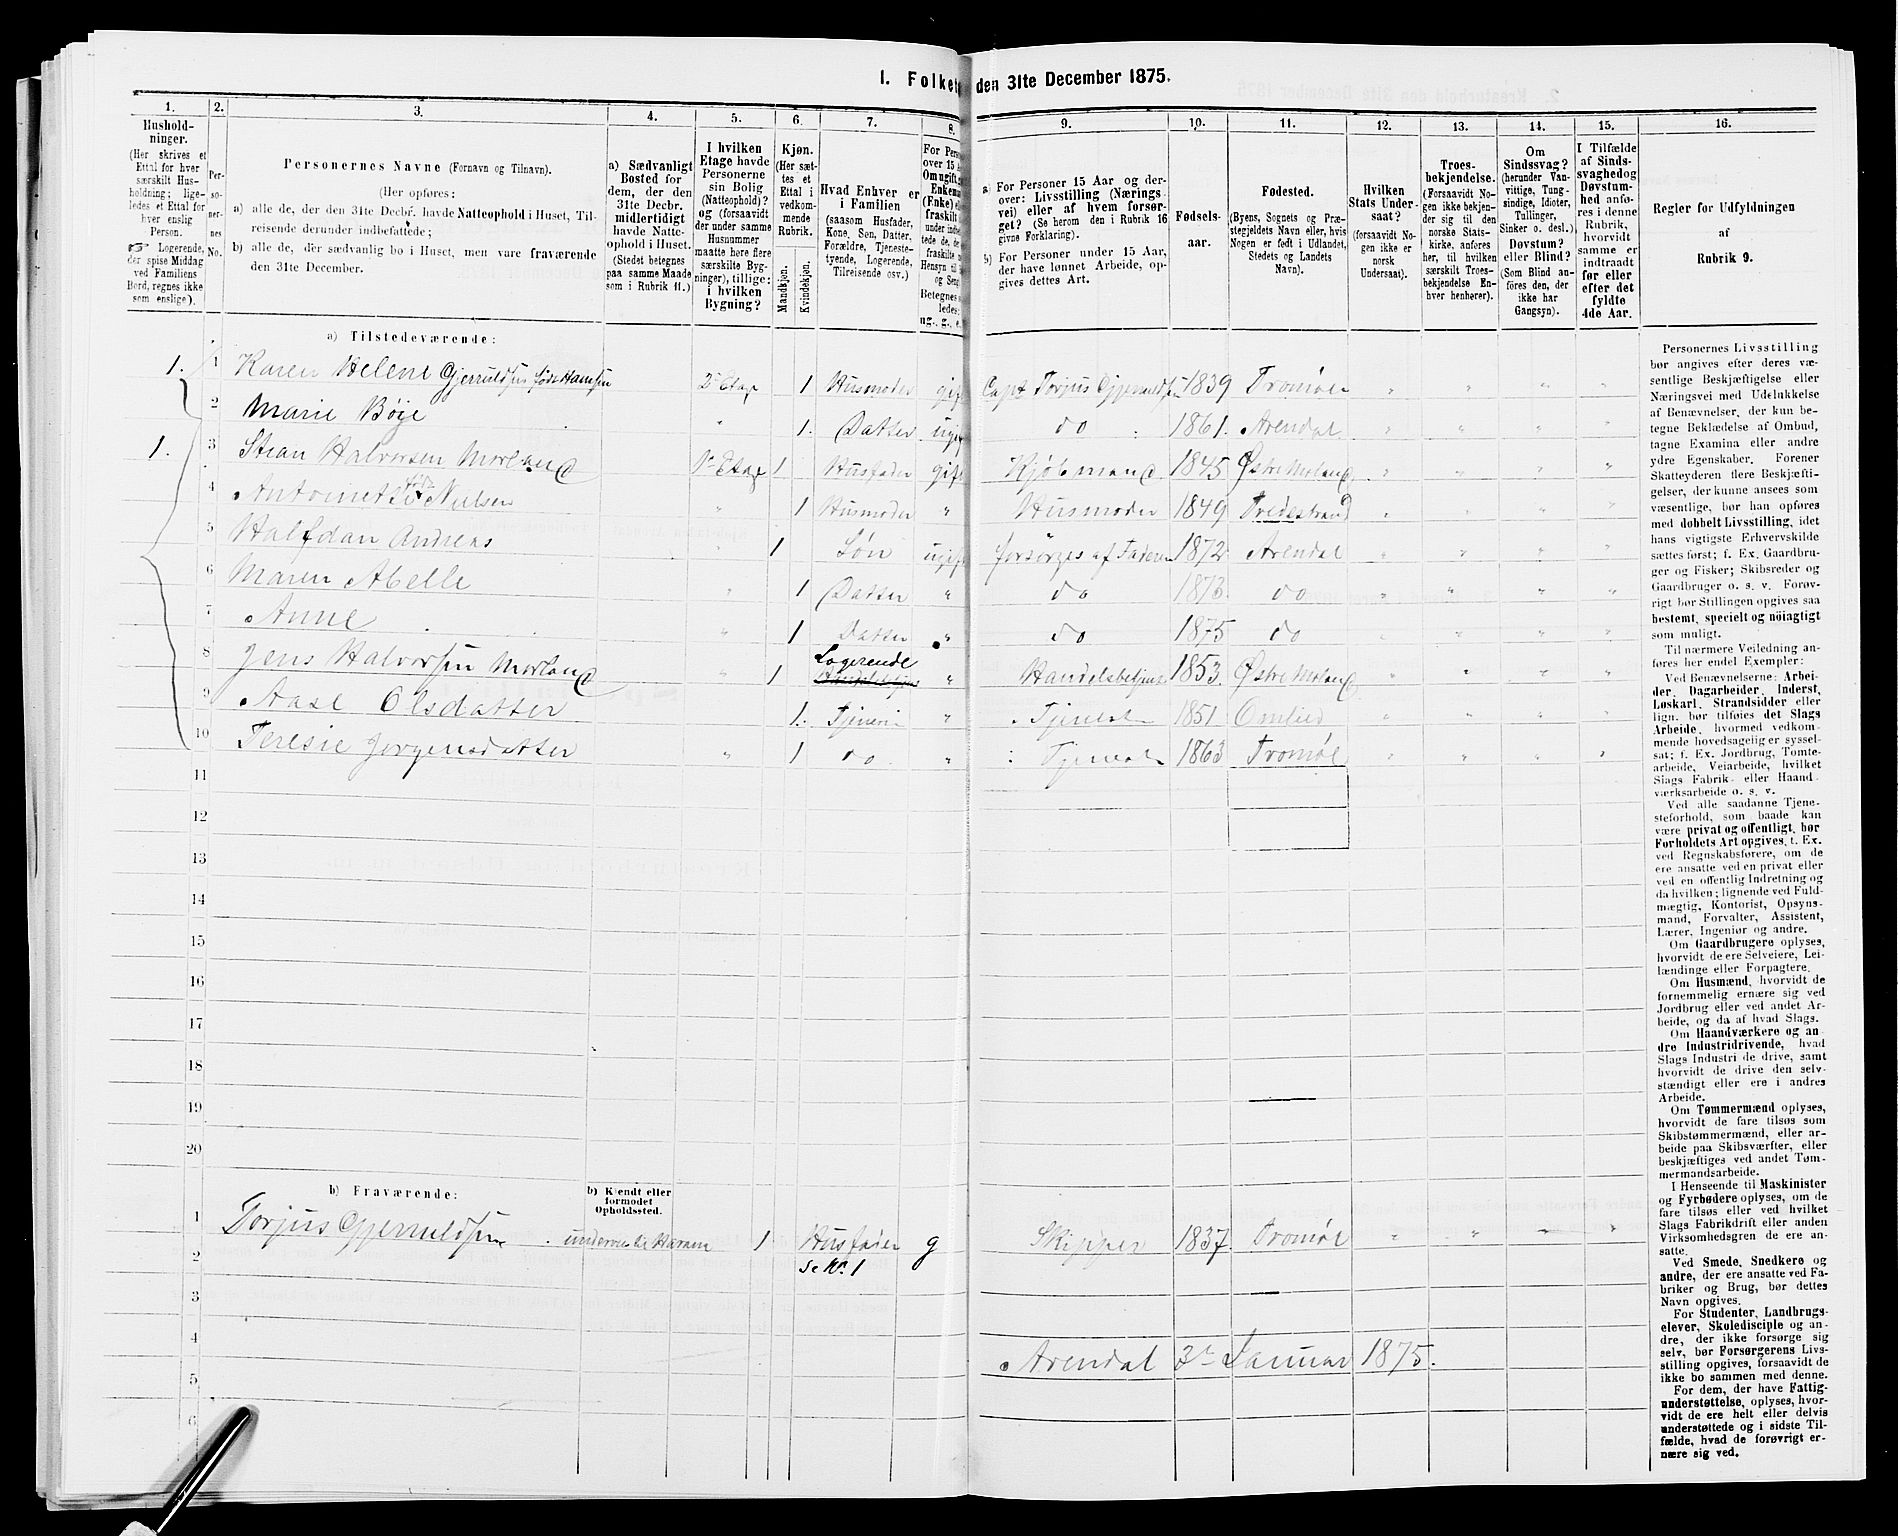 1. Folket den 31te December 1875.
1. 2. 3. 4. 5. 6. 7. 8. 9. 10. 11. 12. 13. 14. 15. 16.
Hushold-
ninger.
(Her skrives et
Ettal for hver
særskilt Hus-
holdning; lige-
ledes et Ettal for
hver enslig
Person.
☞ Logerende,
der spise Middag
ved Familiens
Bord, regnes ikke
som enslige).
Per-
so-
ner-
nes
No.
Personernes Navne (Fornavn og Tilnavn).
(Her opføres:
a) alle de, der den 31te Decbr. havde Natteophold i Huset, Til-
reisende derunder indbefattede;
b) alle de, der sædvanlig bo i Huset, men vare fraværende
den 31te December.
a) Sædvanligt
Bosted for
dem, der den
31te Decbr.
midlertidigt
havde Natte-
ophold i Huset.
(Stedet betegnes
paa samme Maade
som i Rubrik 11.)
I hvilken
Etage havde
Personerne
sin Bolig
(Natteophold)?
og (forsaavidt
der under samme
Husnummer
maatte høre flere
særskilte Byg-
ninger), tillige:
i hvilken
Bygning?
Kjøn.
(Her sæt-
tes et
Ettal i
vedkom-
mende
Rubrik.
Mandkjøn.
Kvindekjøn.
Hvad Enhver er
i Familien
(saasom Husfader,
Kone, Søn, Datter,
Forældre, Tjeneste-
tyende, Logerende,
Tilreisende osv.)
For Pers
over 15 A
Om ugift, g
Enkema
(Enke) el
fraskilt
under indb
tede de, d
fraskilte
Hensyn til
og Seng
Betegnes s
ledes:
ug., g., e.
a) For Personer 15 Aar og der-
over: Livsstilling (Nærings-
vei) eller af hvem forsør-
get? (Se herom den i Rubrik 16
givne Forklaring).
b) For Personer under 15 Aar,
der have lønnet Arbeide, op-
gives dettes Art.
Fødsels-
aar.
Fødested.
(Byens, Sognets og Præ-
stegjeldets Navn eller, hvis
Nogen er født i Udlandet,
Stedets og Landets
Navn).
Hvilken
Stats Under-
saat?
(forsaavidt No-
gen ikke er
norsk
Undersaat).
Troes-
bekjendelse.
(Forsaavidt No-
gen ikke bekjen-
der sig til den
norske Stats-
kirke, anføres
her, til hvilken
særskilt Troes-
bekjendelse En-
hver henhører).
Om
Sindssvag?
(herunder Van-
vittige, Tung-
sindige, Idioter,
Tullinger,
Sinker o. desl.)
Døvstum?
eller Blind?
(Som Blind an-
føres den, der
ikke har
Gangsyn).
I Tilfælde
af Sinds-
svaghed og
Døvstum-
hed anfø-
res i denne
Rubrik,
hvorvidt
samme er
indtraadt
før eller
efter det
fyldte
4de Aar.
Regler for Udfyldningen
af
Rubrik 9.
a) Tilstedeværende:
1. 1 Karen Helene Gjeruldsen født Hansen 2 Etage 1 Husmoder gift Capt Torjus Gjeruldsen 1839 Tromøe " " " "
2 Marie Bøje " 1. Datter ugift do 1861. Arendal " " " "
1. 3 Stian Halvorsen Morland 1e Etage 1 Husfader gift Kjøbmand 1845 Østre Moland " " " "
4 Antoinette født Nielsen " 1 Husmoder " Husmoder 1849 Tvedestrand " " " "
5 Halfdan Andreas " 1 Søn ugift forsørges af Faderen 1872 Arendal " " " "
6 Maren Abelle " 1 Datter " do 1873. do " " " "
7 Anne " 1 Datter " do 1875 do " " " "
8 Jens Halvorsen Morland " 1 Logerende " Handelsbetjent 1853. Østre Moland " " " "
9 Aase Olsdatter " 1. Tjeneri " Tjeneste 1851 Omlied " " " "
10 Teresie Jørgensdatter " 1 do " Tjeneste 1863 Tromøe " " " "
11
13
14
15
16
17
18
19
20
b) Fraværende:
b) Kjendt eller
formodet
Opholdssted.
1 Torjus Gjeruldsen underveis til Havann 1 Husfader g Skipper 1837. Tromøe " " " "
2 se No. 1
3
4 Arendal 3e Januar 1875.
5
6
Personernes Livsstilling
bør angives efter deres væ-
sentlige Beskjæftigelse eller
Næringsvei med Udelukkelse
af Benævnelser, der kun be-
tegne Beklædelse af Ombud,
tagne Examina eller andre
ydre Egenskaber. Forener
Skatteyderen flere Beskjæfti-
gelser, der kunne ansees som
væsentlige, bør han opføres
med dobbelt Livsstilling, idet
hans vigtigste Erhvervskilde
sættes først; f. Ex. Gaardbru-
ger og Fisker; Skibsreder og
Gaardbruger o. s. v. Forøv-
rigt bør Stillingen opgives saa
bestemt, specielt og nøiagtigt
som muligt.
Til nærmere Veiledning an-
føres her endel Exempler:
Ved Benævnelserne: Arbei-
der, Dagarbeider, Inderst,
Løskarl, Strandsidder eller
lign. bør tilføies det Slags
Arbeide, hvormed vedkom-
mende hovedsagelig er syssel-
sat; f. Ex. Jordbrug, Tomte-
arbeide, Veiarbeide, hvilket
Slags Fabrik- eller Haand-
værksarbeide o. s. v.
Ved alle saadanne Tjene-
steforhold, som baade kan
være privat og offentligt, bør
Forholdets Art opgives, f. Ex.
ved Regnskabsførere, om de
ere ansatte ved en privat eller
ved en offentlig Indretning og
da hvilken; lignende ved Fuld-
mægtig, Kontorist, Opsyns-
mand, Forvalter, Assistent,
Lærer, Ingeniør og andre.
Om Gaardbrugere oplyses,
hvorvidt de ere Selveiere, Lei-
lændinge eller Forpagtere.
Om Husmænd, hvorvidt de
fornemmelig ernære sig ved
Jordbrug eller ved andet Ar-
beide, og da af hvad Slags.
Om Haandværkere og an-
dre Industridrivende, hvad
Slags Industri de drive, samt
hvorvidt de drive den selv-
stændigt eller ere i andres
Arbeide.
Om Tømmermænd oplyses,
hvorvidt de fare tilsøs som
Skibstømmermænd, eller ar-
beide paa Skibsværfter, eller
beskjæftiges ved andet Tøm-
mermandsarbeide.
I Henseende til Maskinister
og Fyrbødere oplyses, om de
fare tilsøs eller ved hvilket
Slags Fabrikdrift eller anden
Virksomhedsgren de ere an-
satte.
Ved Smede, Snedkere og
andre, der ere ansatte ved Fa-
briker og Brug, bør dettes
Navn opgives.
For Studenter, Landbrugs-
elever, Skoledisciple og an-
dre, der ikke forsørge sig
selv, bør Forsørgerens Livs-
stilling opgives, forsaavidt de
ikke bo sammen med denne.
For dem, der have Fattig-
understøttelse, oplyses, hvor-
vidt de ere helt eller delvis
understøttede og i sidste Til-
fælde, hvad de forøvrigt er-
nære sig ved.